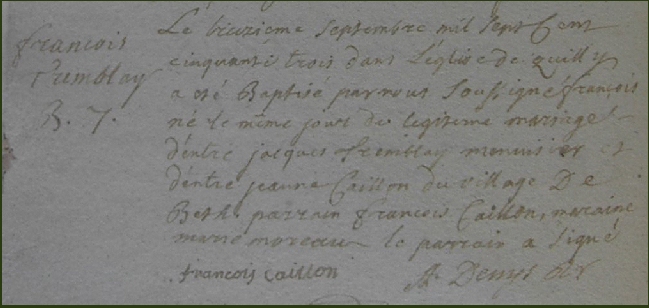 francois
Tremblay
B. 7.
Le treizieme Septembre mil Sept Cent
cinquante trois dans L'eglise de quilly
a eté Baptisé par nous Soussigné françois
né le même jour du legitime mariage
d'entre jacques Tremblay menusier et
d'entre jeanne Caillon du village De
Beth. parrain francois Caillon, maraine
marie moreau le parrain a signé
francois Caillon
Denys